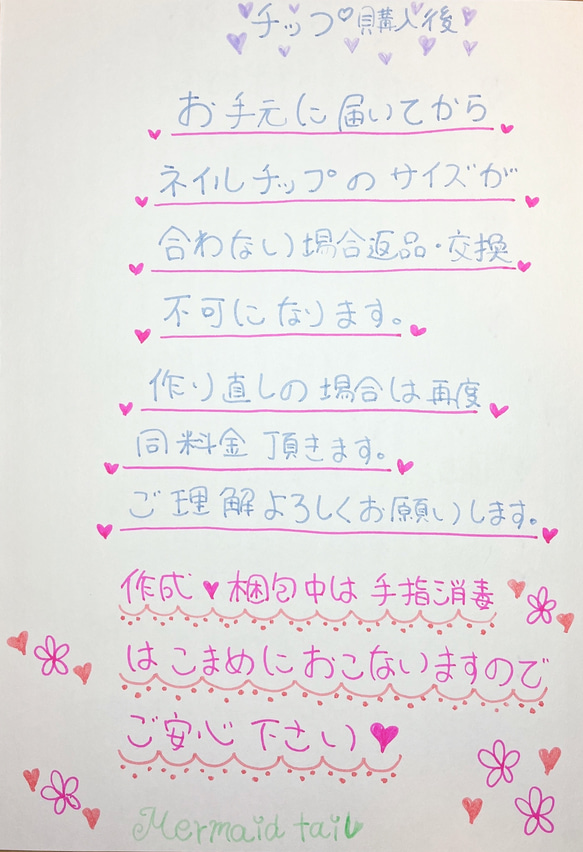 チップ♡購入後
お手元に届いてから
ネイルチップのサイズが
合わない場合返品・交換
不可になります。
作り直しの場合は再度
同料金頂きます。
ご理解よろしくお願いします。
作成♥梱包中は手指消毒
はこまめにおこないますので
ご安心下さい♥
Mermaid tail